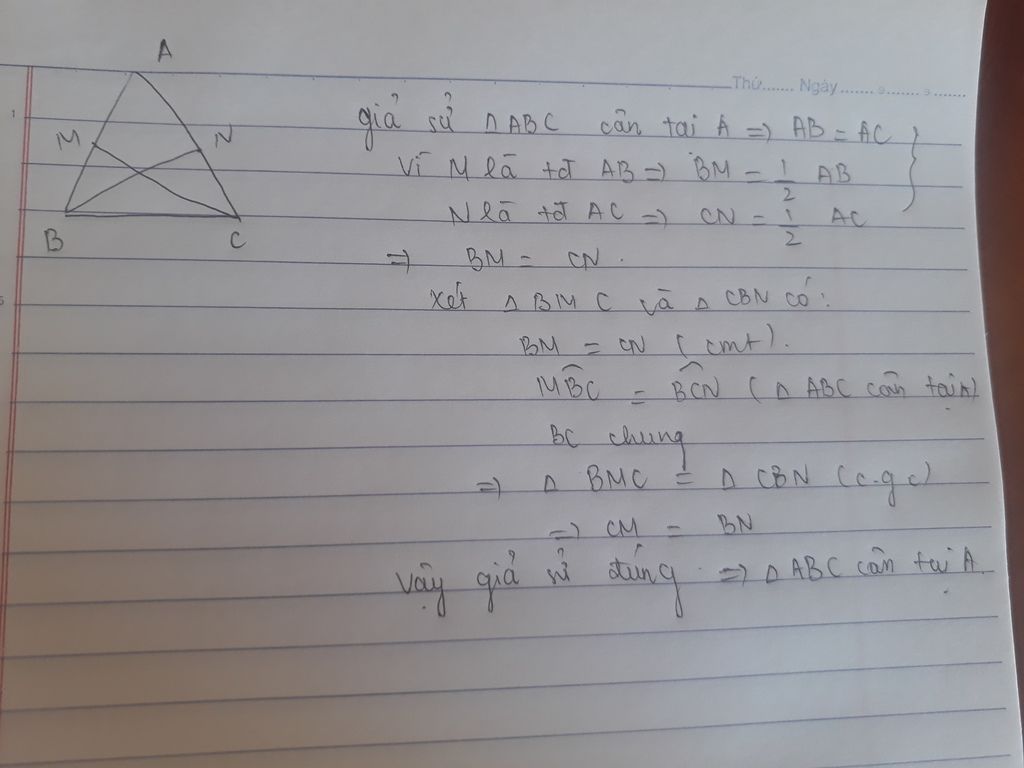 Thứ....... Ngày....... ....... .......
A
M
N
B
C
giả sử △ABC cân tại A => AB = AC
Vì M là tđ AB => BM = 1/2 AB
N là tđ AC => CN = 1/2 AC
=> BM = CN.
xét △ BMC và △ CBN có:
BM = CN (cmt).
MBC = BCN (△ ABC cân tại A)
BC chung
=> △ BMC = △ CBN (c.g c)
=> CM = BN
vậy giả sử đúng => △ ABC cân tại A.